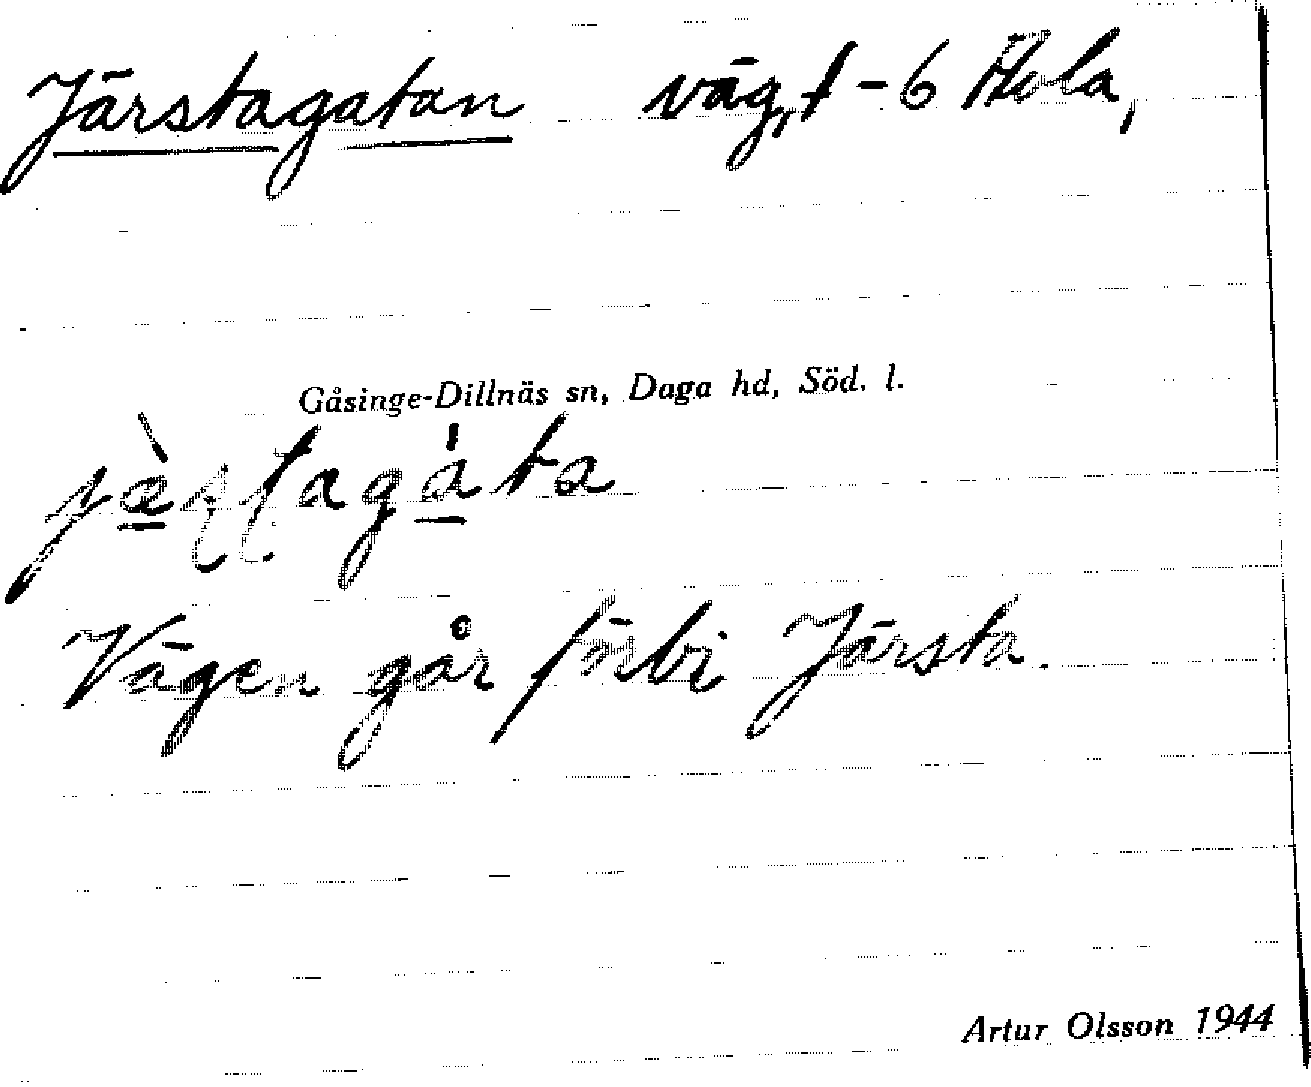 Järstagatan väg, f-6 Hola,
Gåsinge-Dillnäs sn, Daga hd, Söd. l.
Vägen går förbi Järsta.
Artur Olsson 1944